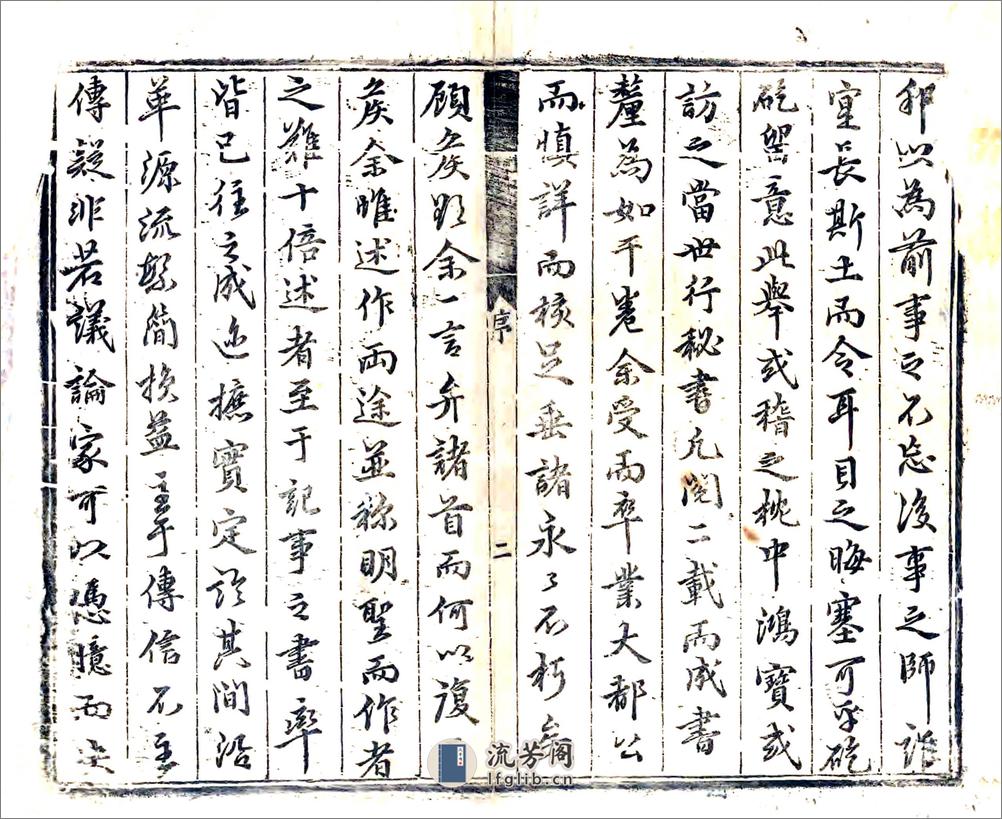 以為前事之不忘後事之師詎
宦長斯土而令耳目之晦塞可乎矻
矻罄意此舉或稽之枕中鴻寶或
訪之當世行秘書凡閱二載而成書
釐為如干卷余受而卒業大都公
而慎詳而核足垂諸永永不朽矣
序 二
顧矦欲余一言弁諸首而何以復
矦余唯述作兩途並稱明聖而作者
之難十倍述者至于記事之書率
皆已往之成迹摭實定於其間沿
革源流繁簡損益主乎傳信不主
傳疑非若議論家可以憑臆而史
流芳阁
lfglib.cn